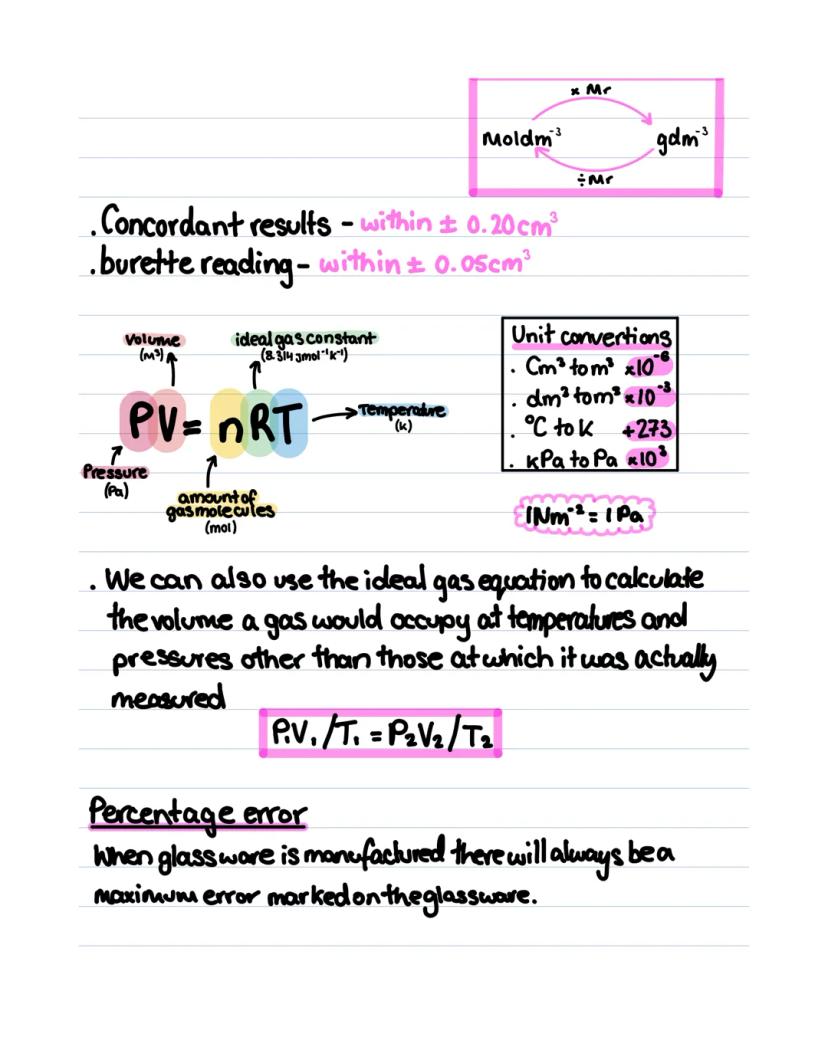 × Mr
Moldm⁻³ gdm⁻³
÷Mr
. Concordant results - within ± 0.20cm³
. burette reading - within ± 0.05cm³
Volume
(m³)
ideal gas constant
(8.314 Jmol⁻¹K⁻¹)
PV = nRT
Temperature
(K)
Pressure
(Pa)
amount of
gas molecules
(mol)
Unit convertions
. Cm³ to m³ ×10⁻⁶
. dm³ to m³ ×10⁻³
. °C to K +273
. kPa to Pa ×10³
1Nm⁻² = 1Pa
. We can also use the ideal gas equation to calculate
the volume a gas would occupy at temperatures and
pressures other than those at which it was actually
measured
P₁V₁/T₁ = P₂V₂/T₂
Percentage error
When glassware is manufactured there will always be a
maximum error marked on the glassware.